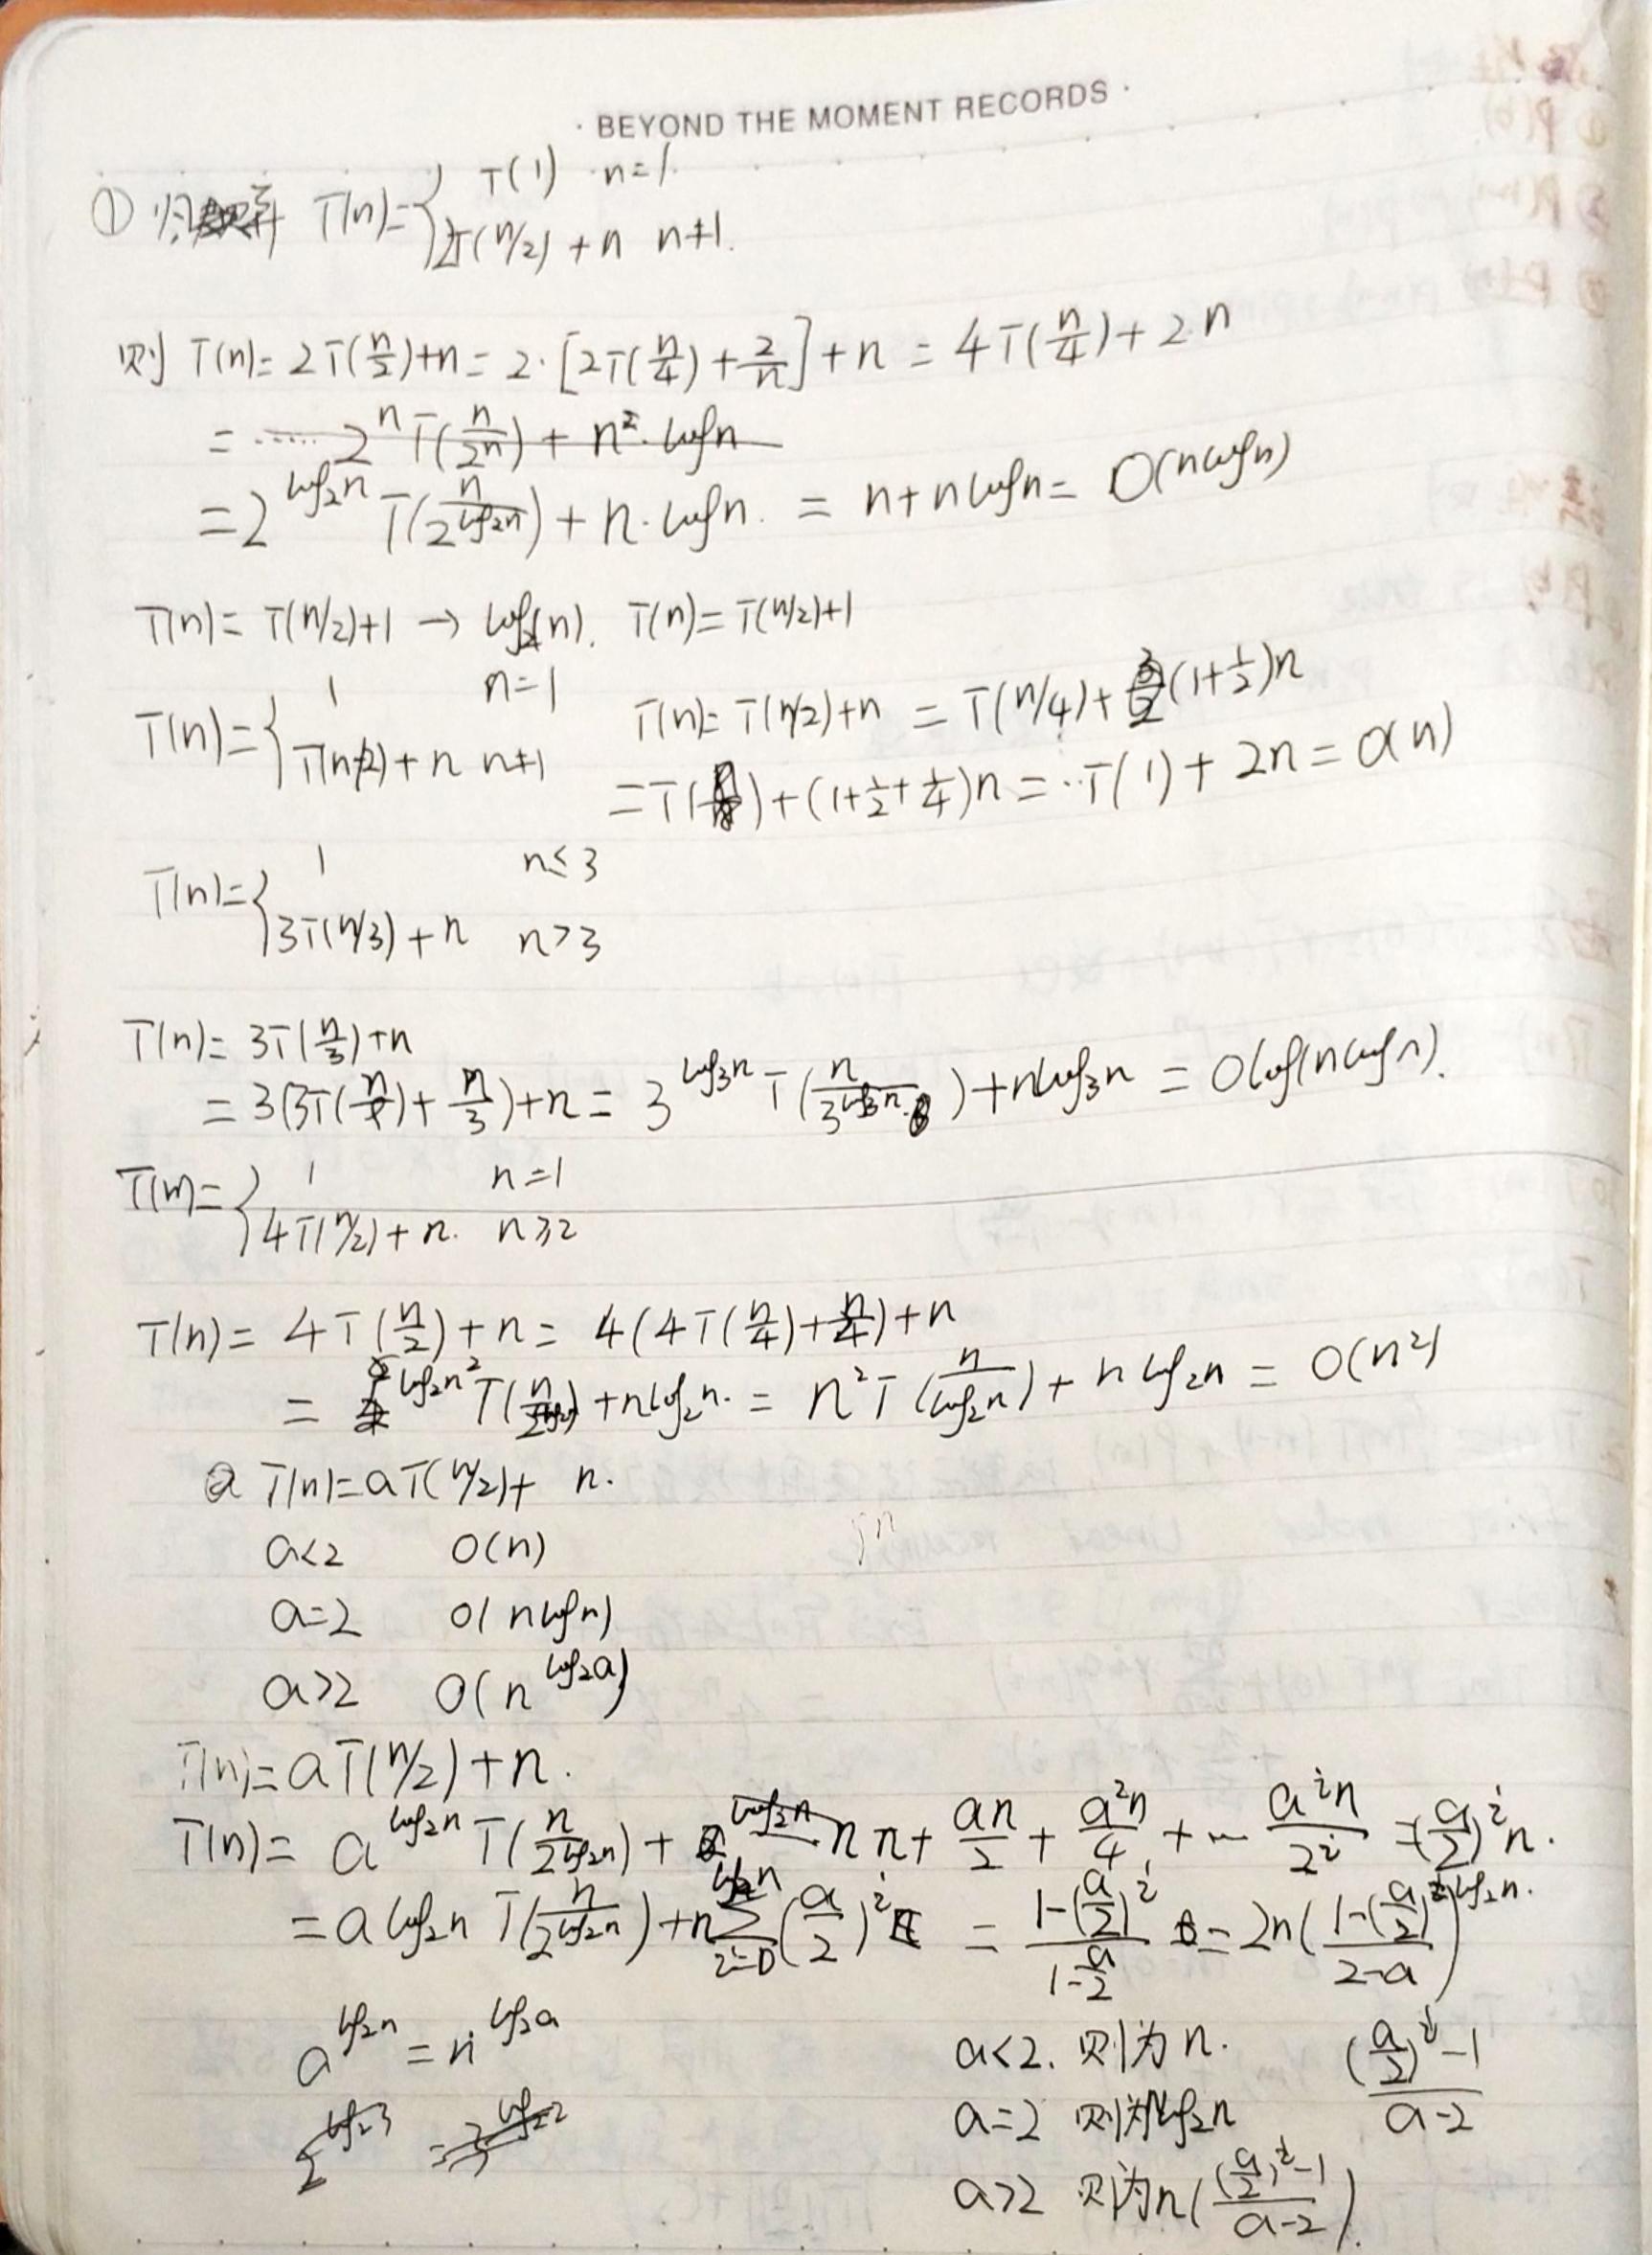 · BEYOND THE MOMENT RECORDS ·
① 归 T(n)={ T(1) n=1.
2T(n/2)+n n≠1.
则 T(n)= 2T(n/2)+n = 2·[2T(n/4)+2/n]+n = 4T(n/4)+2·n
= ...... 2^n T(n/2n) + n²·logn
=2^log₂n T(n/2^log₂n) + n·logn. = n+nlogn= O(nlogn)
T(n)= T(n/2)+1 → log₂(n). T(n)=T(n/2)+1
T(n)={ 1 n=1
T(n/2)+n n≠1
T(n)= T(n/2)+n = T(n/4)+(1+1/2)n
=T(n/8)+(1+1/2+1/4)n = ··T(1)+2n = O(n)
T(n)={ 1 n≤3
3T(n/3)+n n>3
T(n)= 3T(n/3)+n
= 3(3T(n/9)+n/3)+n = 3^log₃n T(n/3^log₃n)+nlog₃n = Olog(nlogn).
T(n)={ 1 n=1
4T(n/2)+n. n≥2
T(n)= 4T(n/2)+n = 4(4T(n/4)+n/4)+n
= 2^log₂n² T(n/2^log₂n)+nlog₂n. = n²T(n/log₂n)+nlog₂n = O(n²)
② T(n)=aT(n/2)+ n.
a<2 O(n)
a=2 O(nlogn)
a>2 O(n^log₂a)
T(n)=aT(n/2)+n.
T(n)= a^log₂n T(n/2^log₂n) + n+an/2+a²n/4+···a^i n/2^i =(a/2)^i n.
=a^log₂n T(n/2^log₂n)+n∑_{i=0}^{log₂n}(a/2)^i = (1-(a/2)^i)/(1-a/2) = 2n((1-(a/2)^log₂n)/(2-a)).
a^log₂n = n^log₂a
2^log₂3 =3^log₂2
a<2. 则为n. ((a/2)^i-1)/(a-2)
a=2 则为log₂n
a>2 则为n(((a/2)^i-1)/(a-2)).